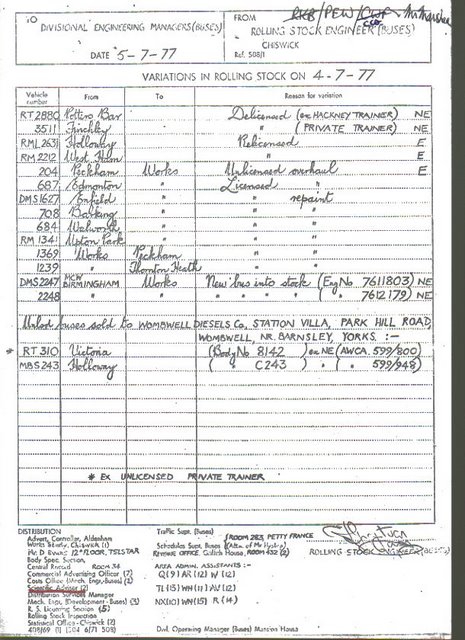 TO
DIVISIONAL ENGINEERING MANAGERS (BUSES)
DATE 5-7-77
FROM RKB/PEW/
ROLLING STOCK ENGINEER (BUSES)
CHISWICK
Ref. 508/1
VARIATIONS IN ROLLING STOCK ON 4-7-77
Vehicle number From To Reason for variation
RT2880 Potters Bar Delicensed (ex HACKNEY TRAINER) NE
3511 Finchley " (PRIVATE TRAINER) NE
RML2631 Holloway Relicensed E
RM2212 West Ham " E
204 Peckham Works Unlicensed overhaul E
687 Edmonton " Licensed "
DMS1627 Enfield " " repaint
708 Barking " " "
684 Walworth " " "
RM1341 Upton Park " "
1369 Works Peckham "
1239 " Thornton Heath "
DMS2247 MCW BIRMINGHAM Works New bus into stock (Eng No 7611803) NE
2248 " " " " " " ( " 7612179) NE
Unlcd buses sold to WOMBWELL DIESELS Co, STATION VILLA, PARK HILL ROAD,
WOMBWELL, NR. BARNSLEY, YORKS. :-
* RT310 Victoria (Body No 8142) ex NE (AWCA 599/800)
MBS243 Holloway ( " C243 ) " ( " 599/948)
* EX UNLICENSED PRIVATE TRAINER
DISTRIBUTION
Advert. Controller, Aldenham
Works Study, Chiswick (1)
Mr. D. Evans 12th FLOOR, TELSTAR
Body Spec. Section
Central Record ROOM 34
Commercial Advertising Officer (7)
Costs Office (Mech. Eng. Buses) (2)
Scientific Advisor (2)
Distribution Services Manager
Mech. Eng. (Development-Buses) (3)
R. S. Licensing Section (5)
Rolling Stock Inspection
Outstation Collection
408/69 (1) 1504 6/71 508)
Traffic Supt. (Buses)
ROOM 283, PETTY FRANCE
Schedules Supt. Buses
REVENUE OFFICE, Griffith House, ROOM 432 (2)
AREA ADMIN. ASSISTANTS :-
Q(9) AR(12) W(12)
TL(13) WH(11) AV(12)
NX(10) WN(15) R(14)
Divl. Operating Manager (Buses) Mansion House
ROLLING STOCK ENGINEER (BUSES)